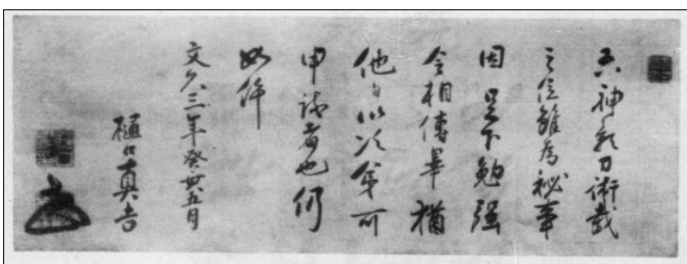 右神影刀術截
之位雖為秘事
因足下勉強
令相傳畢猶
他日以次第可
申談者也仍
如件
文久三年癸亥五月
樋口真吉